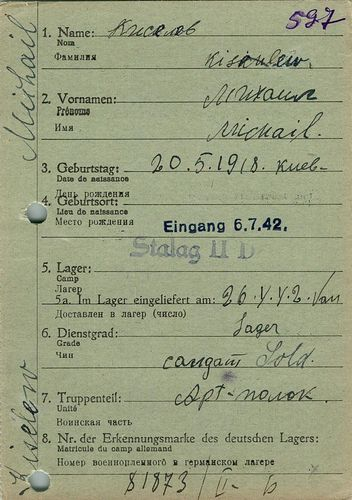 597
Michail
Kiselew
1. Name: Киселов
Nom
Фамилия
2. Vornamen: Михаил
Prénoms
Имя Michail.
3. Geburtstag: 20.5.1918. Киев-
Date de naissance
День рождения
4. Geburtsort:
Lieu de naissance
Место рождения
Eingang 6.7.42.
Stalag II D
5. Lager:
Camp
Лагерь
5a. Im Lager eingeliefert am:
Доставлен в лагерь (число)
Lager
6. Dienstgrad:
Grade
Чин солдат Sold.
7. Truppenteil: Арт-полок.
Unité
Воинская часть
8. Nr. der Erkennungsmarke des deutschen Lagers:
Matricule du camp allemand
Номер военнопленного в германском лагере
81873/